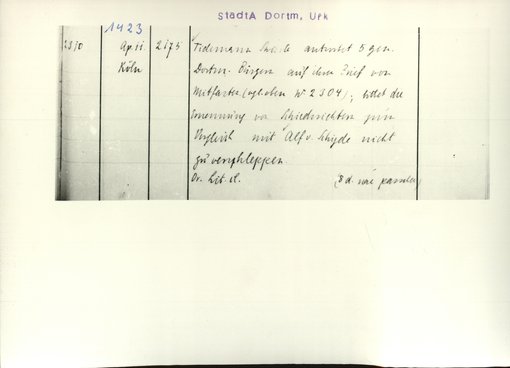 StadtA Dortm, Urk
1423
2310 April 2175 Tidemann antwortet 5 gen.
Köln Dortm. Bürgern auf ihren Brief von
Mitfasten (vgl. oben Nr 2304); bittet die
Ernennung von Schiedsrichtern
Vergleich mit Alf v. nicht
zu verschleppen
Or. Lit. d.